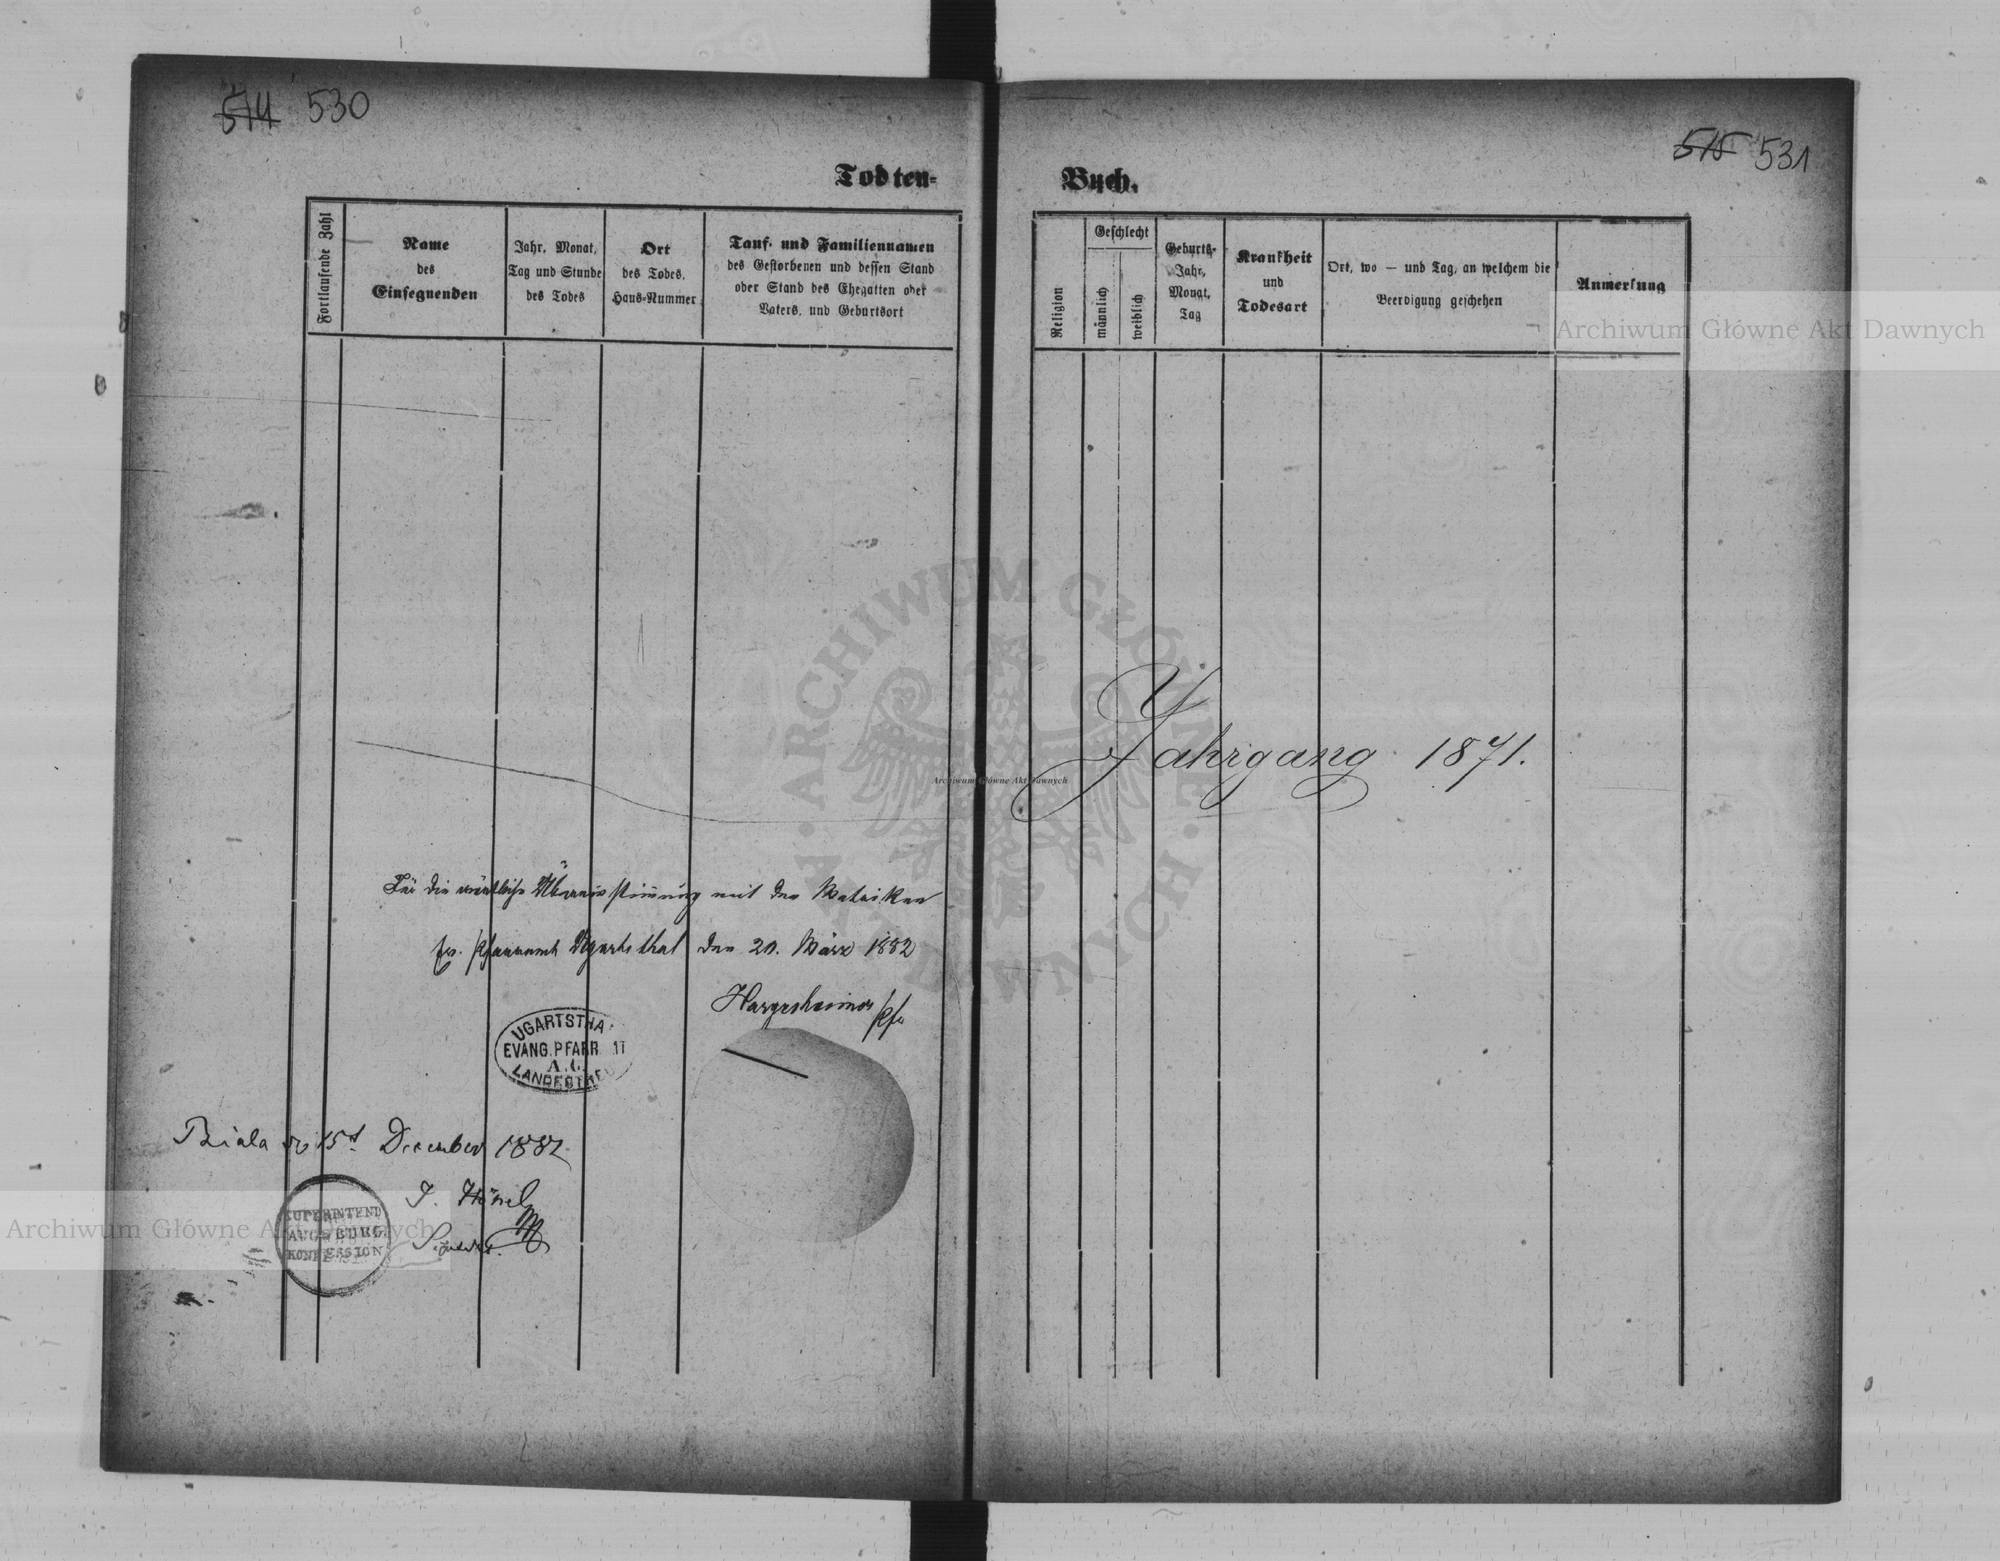 514 530
Todten-
Fortlaufende Zahl
Name
des
Einsegnenden
Jahr, Monat,
Tag und Stunde
des Todes
Ort
des Todes,
Haus-Nummer
Tauf- und Familiennamen
des Gestorbenen und dessen Stand
oder Stand des Ehegatten oder
Vaters, und Geburtsort
Für die wörtliche Übereinstimmung mit den Matriken
ev. Pfarramt Ugartsthal den 20. März 1882
Hargesheimer Pfr
UGARTSTHA
EVANG. PFARR
A. C.
LANDESTREU
Biala 15t December 1882.
J. Hönel
SUPERINTEND
AUGSBURG
KONFESSION
515 531
Buch.
Religion
Geschlecht
männlich
weiblich
Geburts-
Jahr,
Monat,
Tag
Krankheit
und
Todesart
Ort, wo — und Tag, an welchem die
Beerdigung geschehen
Anmerkung
Jahrgang 1871.
Archiwum Główne Akt Dawnych
Archiwum Główne Akt Dawnych
Archiwum Główne Akt Dawnych
ARCHIWUM GŁÓWNE AKT DAWNYCH